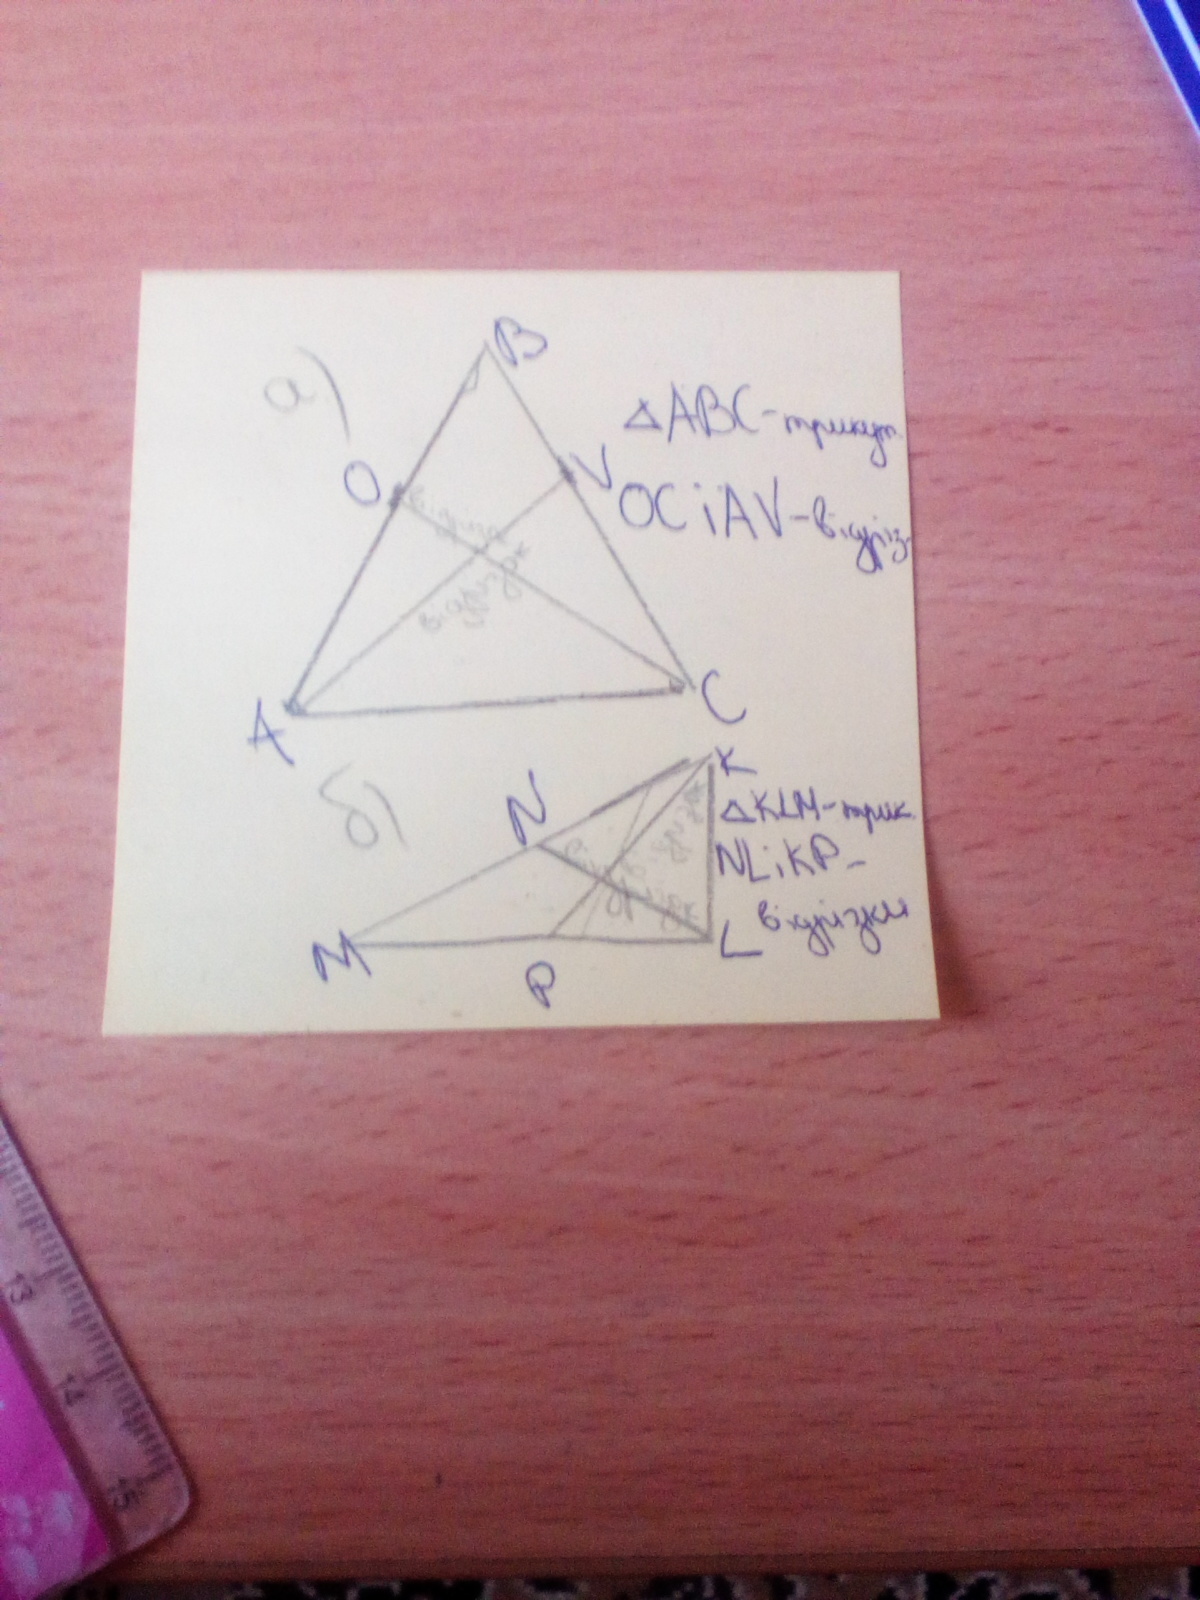 а)
B
O
V
ΔABC-трикут.
OC і AV-відріз.
відрізок
відрізок
A
C
б)
N
K
ΔKLM-трик.
NL і KP-
відрізки
відрізок
відрізок
M
P
L
13
14
15